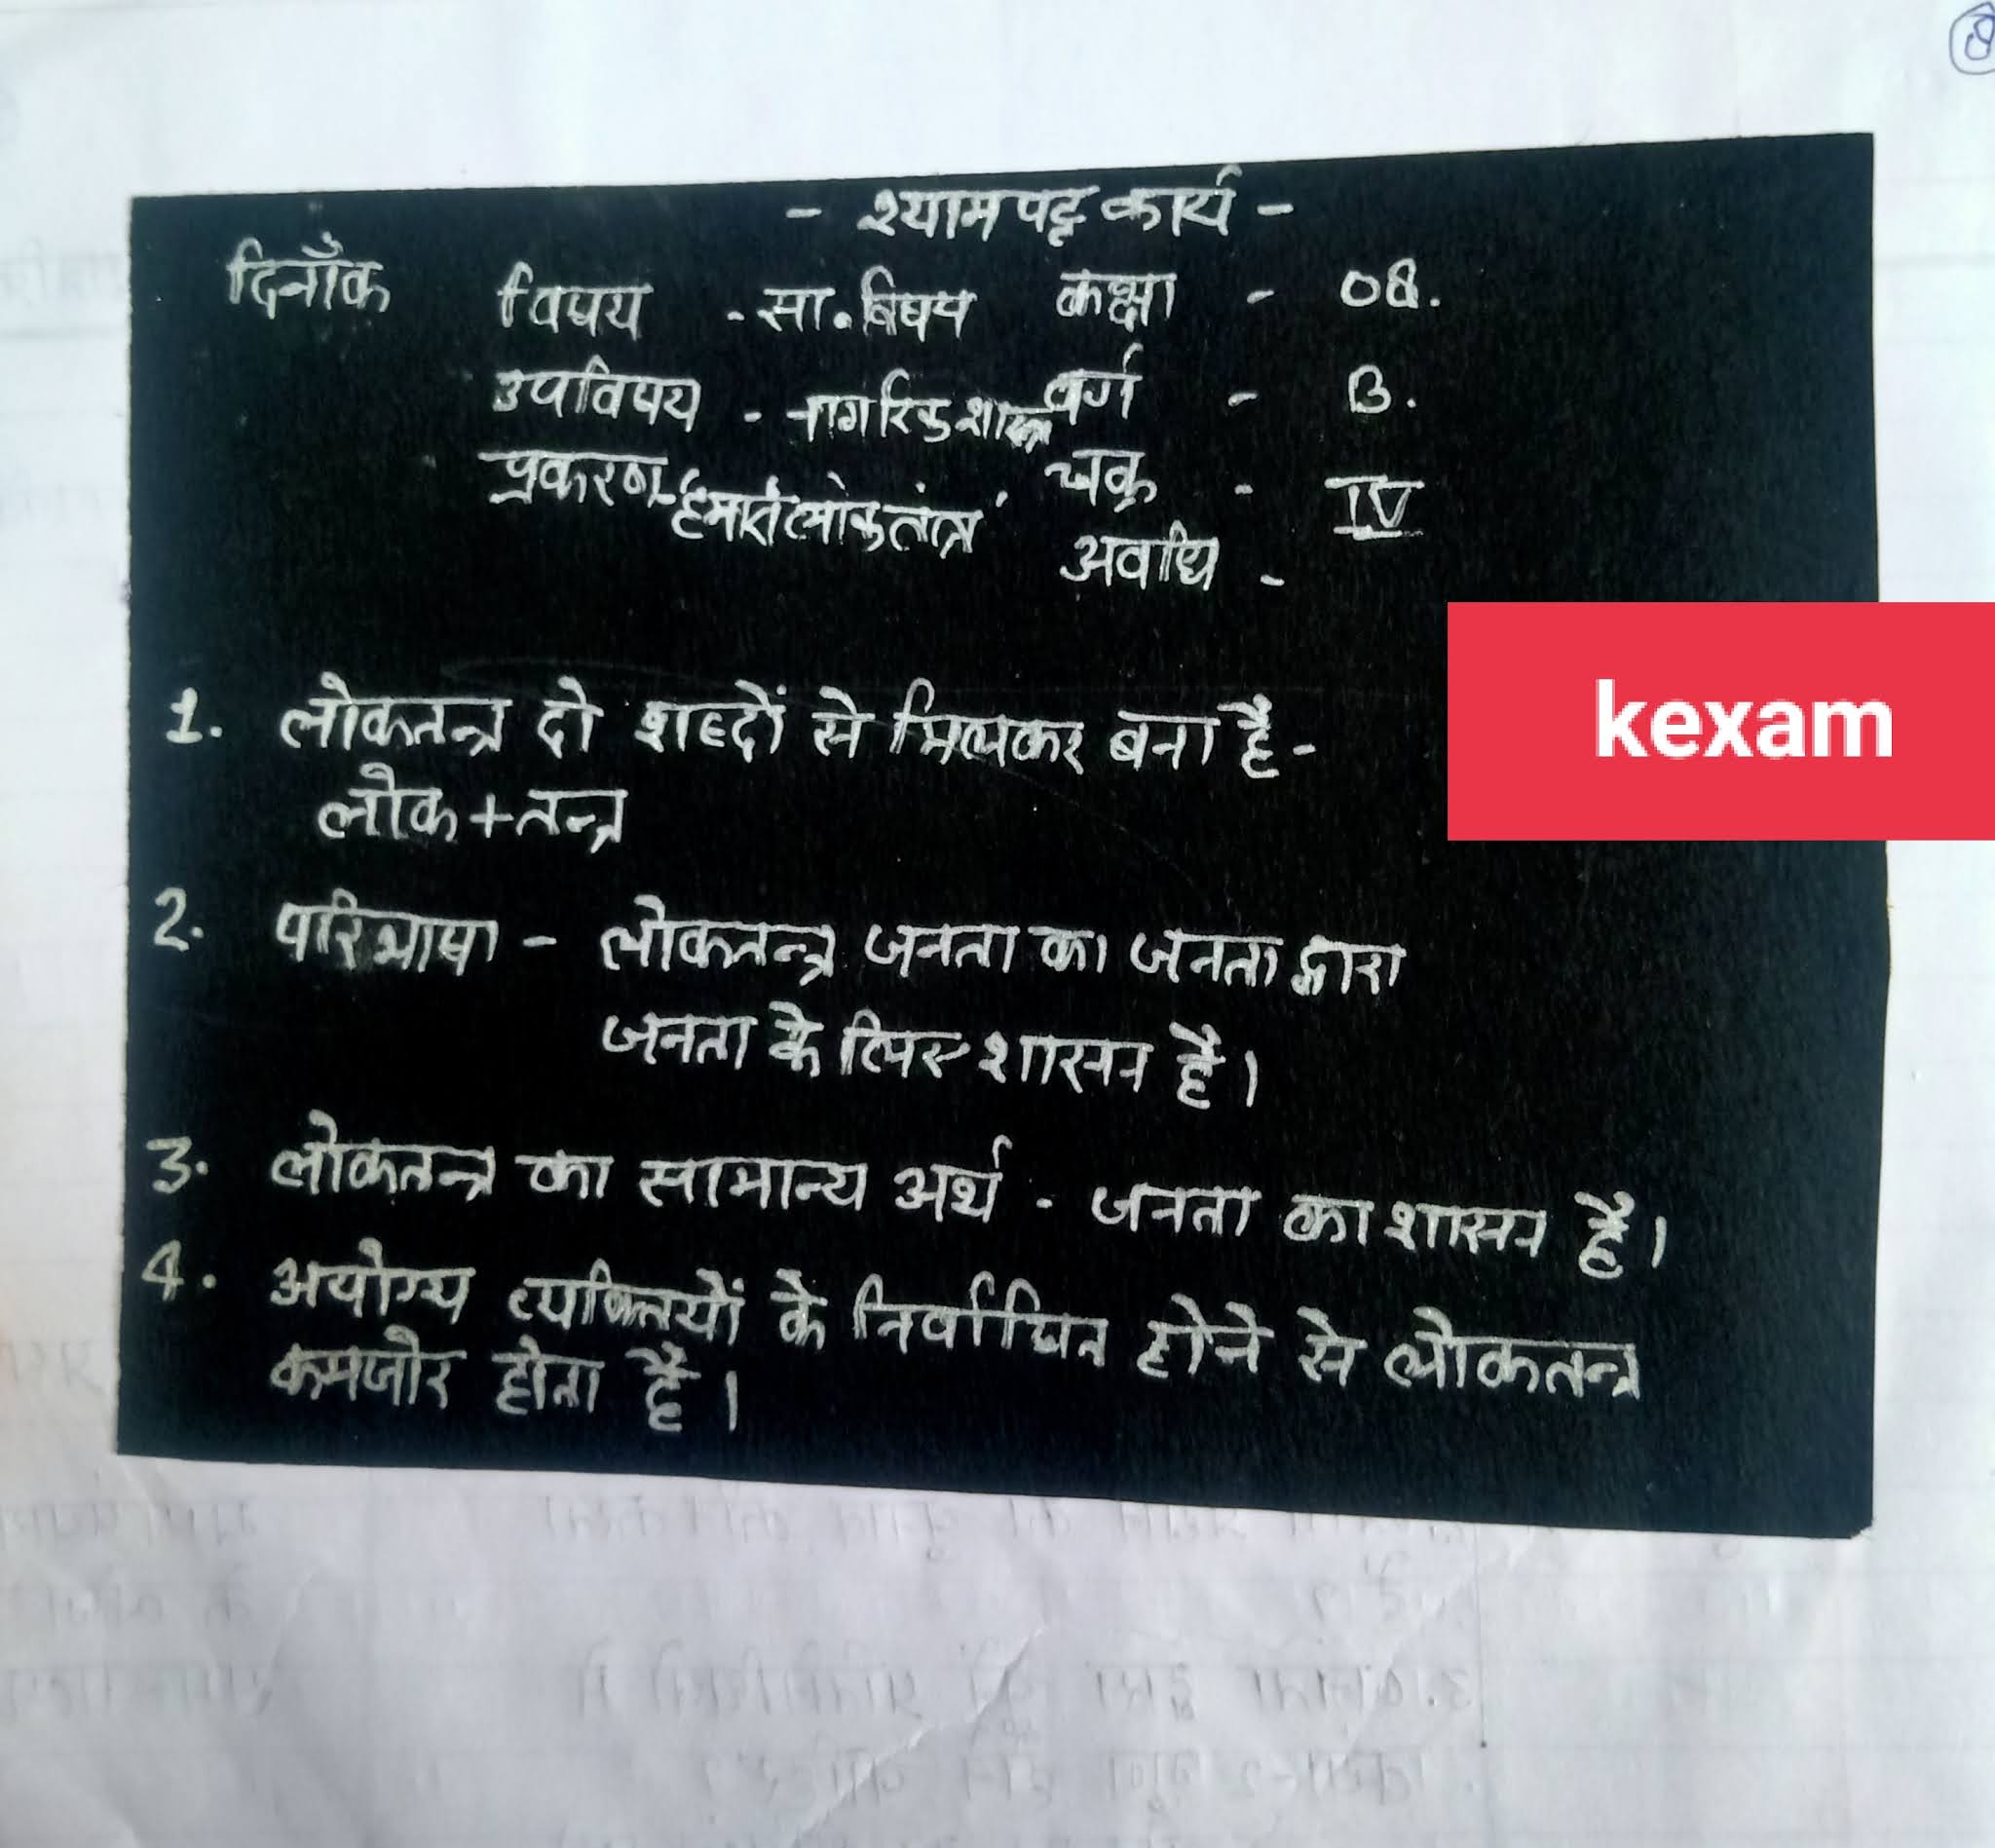 - श्यामपट्ट कार्य -
दिनाँक विषय - सा. विषय कक्षा - 08.
उपविषय - नागरिकशास्त्र वर्ग - B.
प्रकरण - 'हमारा लोकतंत्र' चक्र - IV
अवधि -
kexam
1. लोकतन्त्र दो शब्दों से मिलकर बना है -
लोक+तन्त्र
2. परिभाषा - लोकतन्त्र जनता का जनता द्वारा
जनता के लिए शासन है।
3. लोकतन्त्र का सामान्य अर्थ - जनता का शासन है।
4. अयोग्य व्यक्तियों के निर्वाचित होने से लोकतन्त्र
कमजोर होता है।